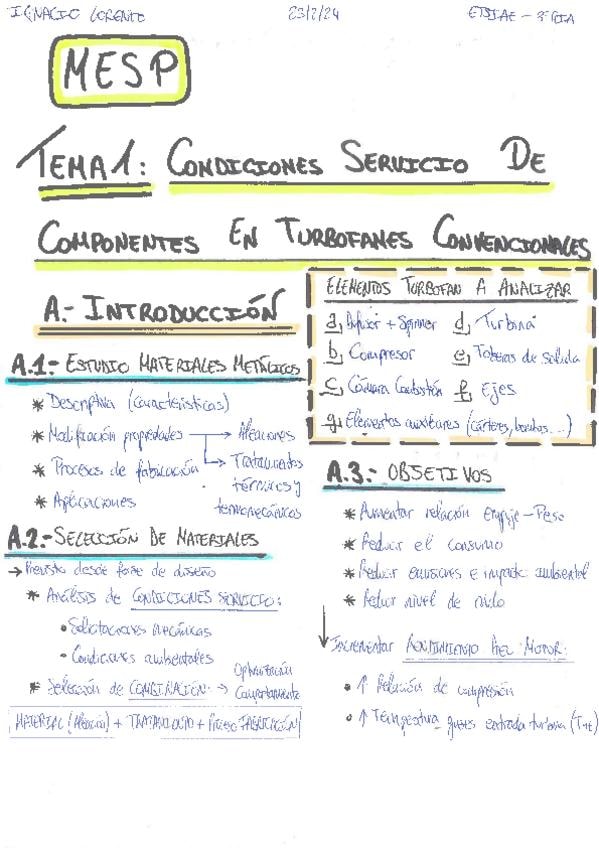 IGNACIO LORENTE 23/2/24 ETSIAE - 3º PIA
MESP
TEMA 1: CONDICIONES SERVICIO DE
COMPONENTES EN TURBOFANES CONVENCIONALES
A.- INTRODUCCIÓN
A.1.- ESTUDIO MATERIALES METÁLICOS
* Descriptiva (características)
* Modificación propiedades → Aleaciones
→ Tratamientos térmicos y termomecánicos
* Procesos de fabricación
* Aplicaciones
A.2.- SELECCIÓN DE MATERIALES
→ Previsto desde fase de diseño
* Análisis de CONDICIONES SERVICIO:
• Solicitaciones mecánicas
• Condiciones ambientales
* Selección de COMBINACIÓN: → Optimización
Comportamiento
MATERIAL (Aleación) + TRATAMIENTO + PROCESO FABRICACIÓN
ELEMENTOS TURBOFAN A ANALIZAR
a, Difusor + Spinner d, Turbina
b, Compresor e, Toberas de salida
c, Cámara Combustión f, Ejes
g, Elementos auxiliares (cárteres, bombas...)
A.3.- OBJETIVOS
* Aumentar relación Empuje-Peso
* Reducir el consumo
* Reducir emisiones e impacto ambiental
* Reducir nivel de ruido
↓ Incrementar RENDIMIENTO DEL MOTOR:
• ↑ Relación de compresión
• ↑ Temperatura gases entrada turbina (T4t)